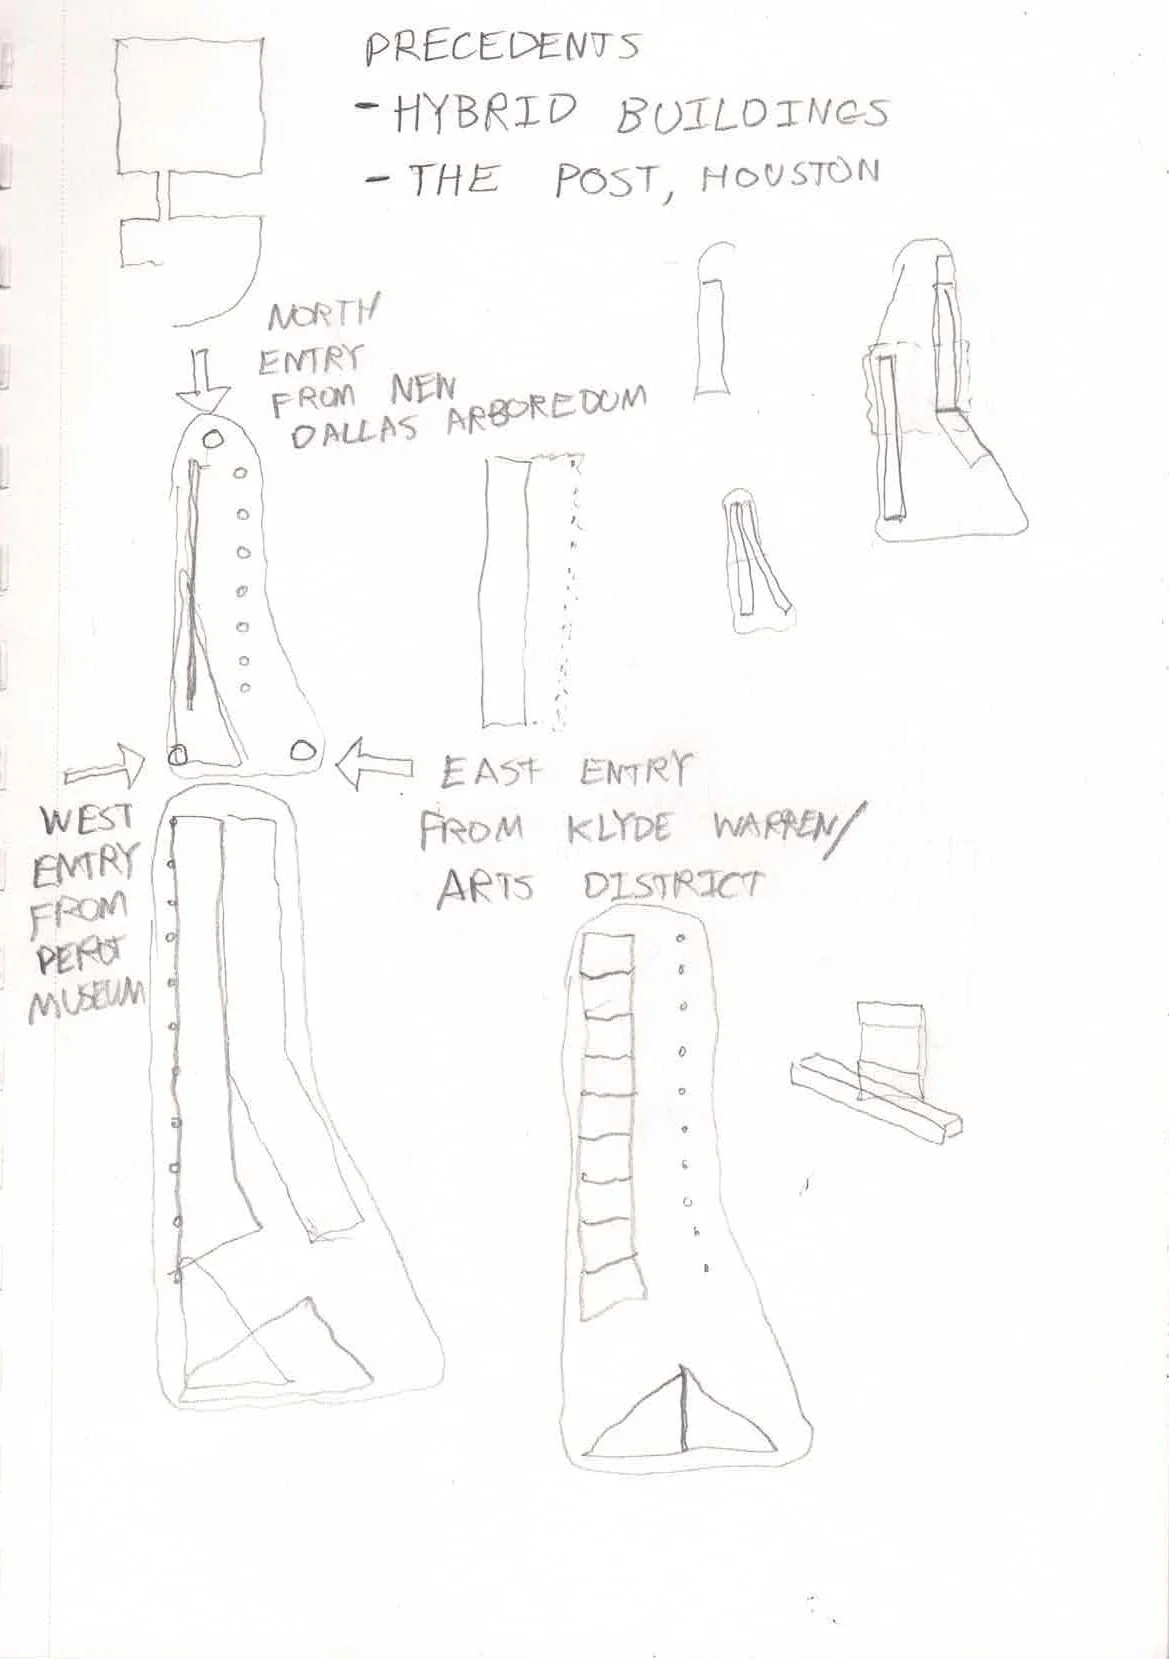 PRECEDENTS
- HYBRID BUILDINGS
- THE POST, HOUSTON
NORTH
ENTRY
FROM NEW
DALLAS ARBOREDUM
EAST ENTRY
FROM KLYDE WARREN/
ARTS DISTRICT
WEST
ENTRY
FROM
PEROT
MUSEUM